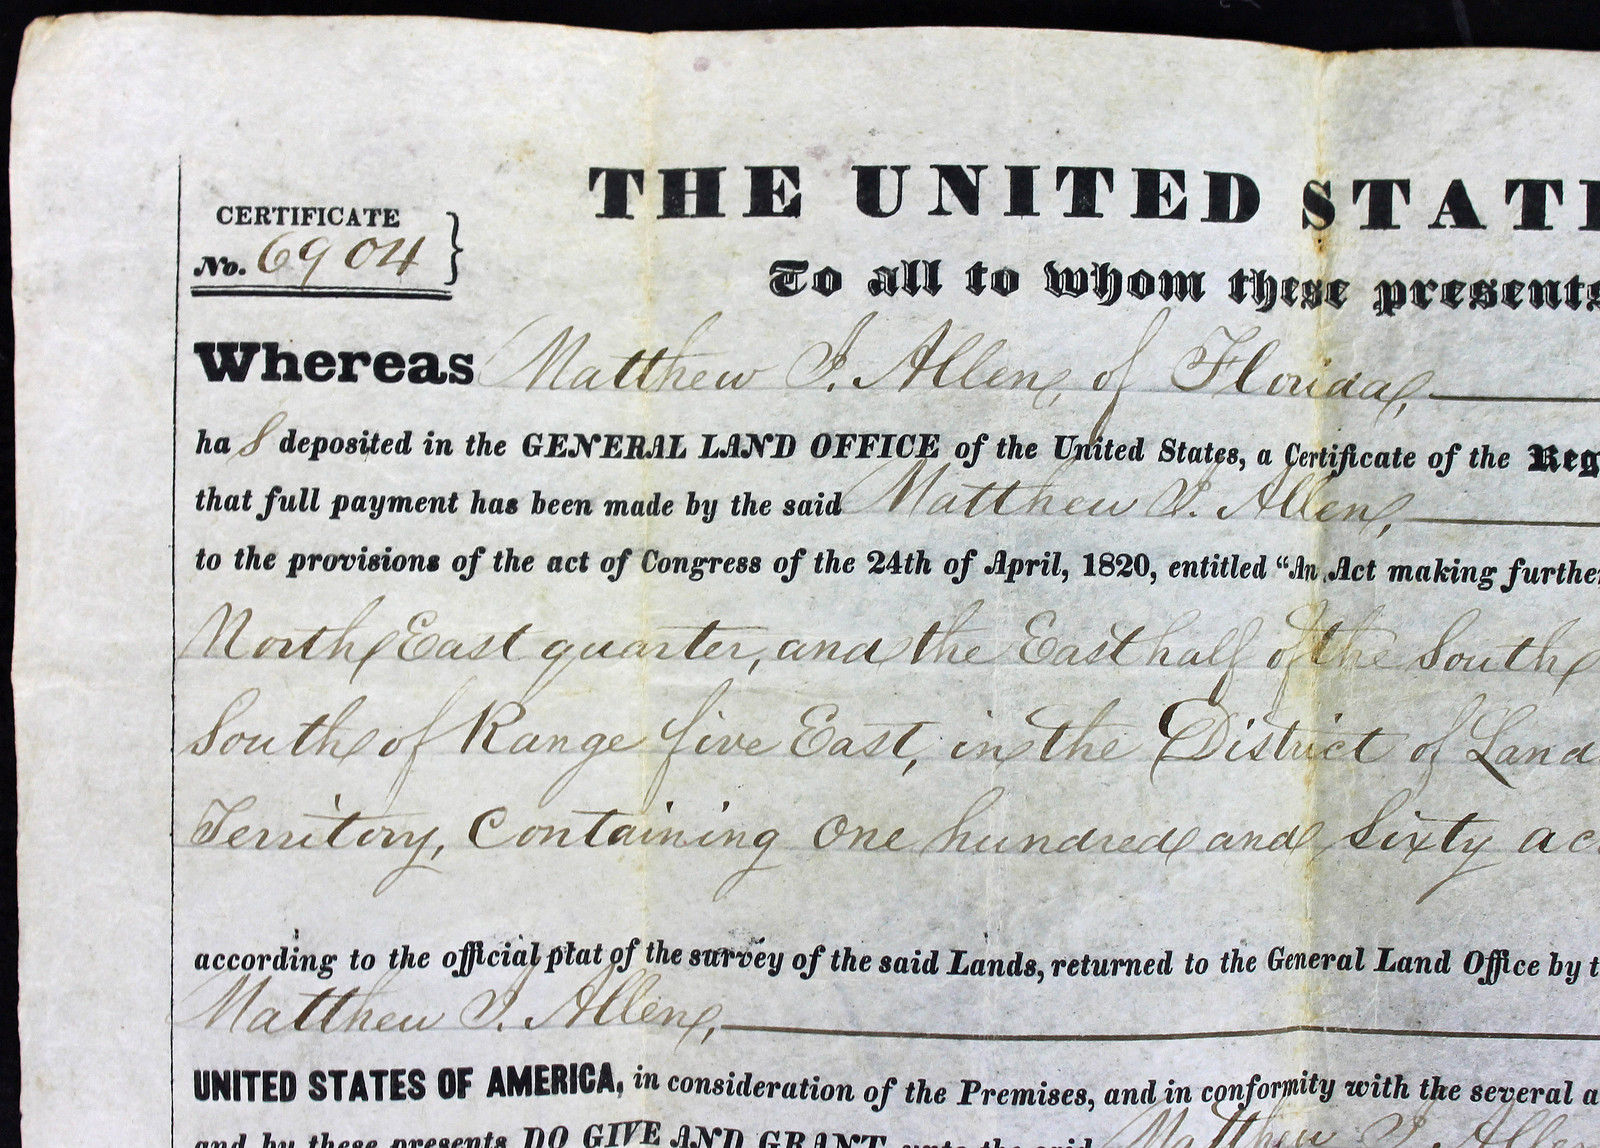 THE UNITED STATE
CERTIFICATE
No. 6904
To all to whom these presents
Whereas Matthew J. Allen, of Florida,
ha s deposited in the GENERAL LAND OFFICE of the United States, a Certificate of the Reg
that full payment has been made by the said Matthew J. Allen,
to the provisions of the act of Congress of the 24th of April, 1820, entitled “An Act making further
North East quarter, and the East half of the South
South of Range five East, in the District of Land
Territory, Containing One hundred and Sixty ac
according to the official plat of the survey of the said Lands, returned to the General Land Office by t
Matthew J. Allen,
UNITED STATES OF AMERICA, in consideration of the Premises, and in conformity with the several a
and by these presents DO GIVE AND GRANT, unto the said Matthew J. Allen